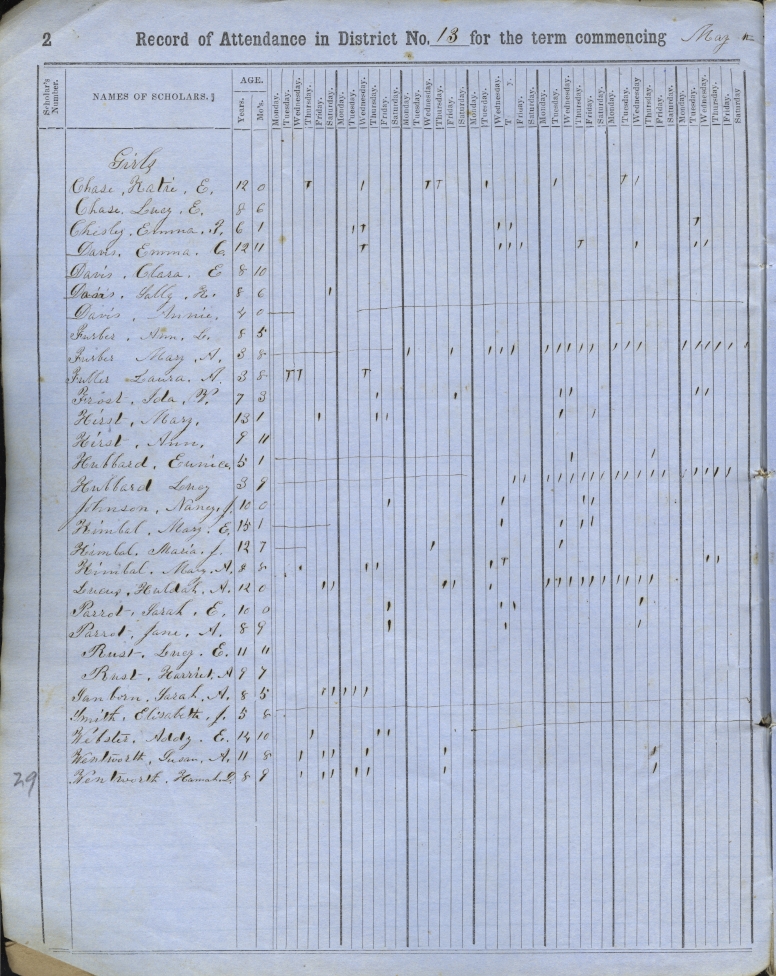 2 Record of Attendance in District No. 13 for the term commencing May
Scholar's Number. NAMES OF SCHOLARS. AGE. Years. Mo's. Monday. Tuesday. Wednesday. Thursday. Friday. Saturday. Monday. Tuesday. Wednesday. Thursday. Friday. Saturday. Monday. Tuesday. Wednesday. Thursday. Friday. Saturday. Monday. Tuesday. Wednesday. T y. Friday. Saturday. Monday. Tuesday. Wednesday. Thursday. Friday. Saturday. Monday. Tuesday. Wednesday Thursday. Friday. Saturday. Monday. Tuesday. Wednesday. Thursday. Friday. Saturday
Girls
Chase, Katie, E. 12 0
Chase, Lucy E. 8 6
Chesley, Emma, 6 1
Davis, Emma C. 12 11
Davis, Clara, E 8 10
Davis, Sally, H. 8 6
Davis, Annie, 4 0
Furber, Ann, L. 8 5
Furber Mary, A. 3 8
Fuller Laura, A. 3 8
Frost, Ida, 7 3
Hirst, Mary, 13 1
Hirst, Ann, 9 11
Hubbard, Eunice, 5 1
Hubbard Lucy 3 9
Johnson, Nancy, J. 10 0
Kimbal, Mary, E. 15 1
Kimbal, Maria, J. 12 7
Kimbal, Mary, A. 8 8
Huldah, A. 12 0
Parrot, Sarah, E. 10 0
Parrot, Jane, A. 8 9
Rust, Lucy, E. 11 11
Rust, Harriet, A 9 7
Sanborn, Sarah, A. 8 5
Smith, Elisabeth, J. 5 8
Webster, Addy, E. 14 10
Wentworth, Susan, A. 11 8
29 Wentworth, Hannah, D. 8 9